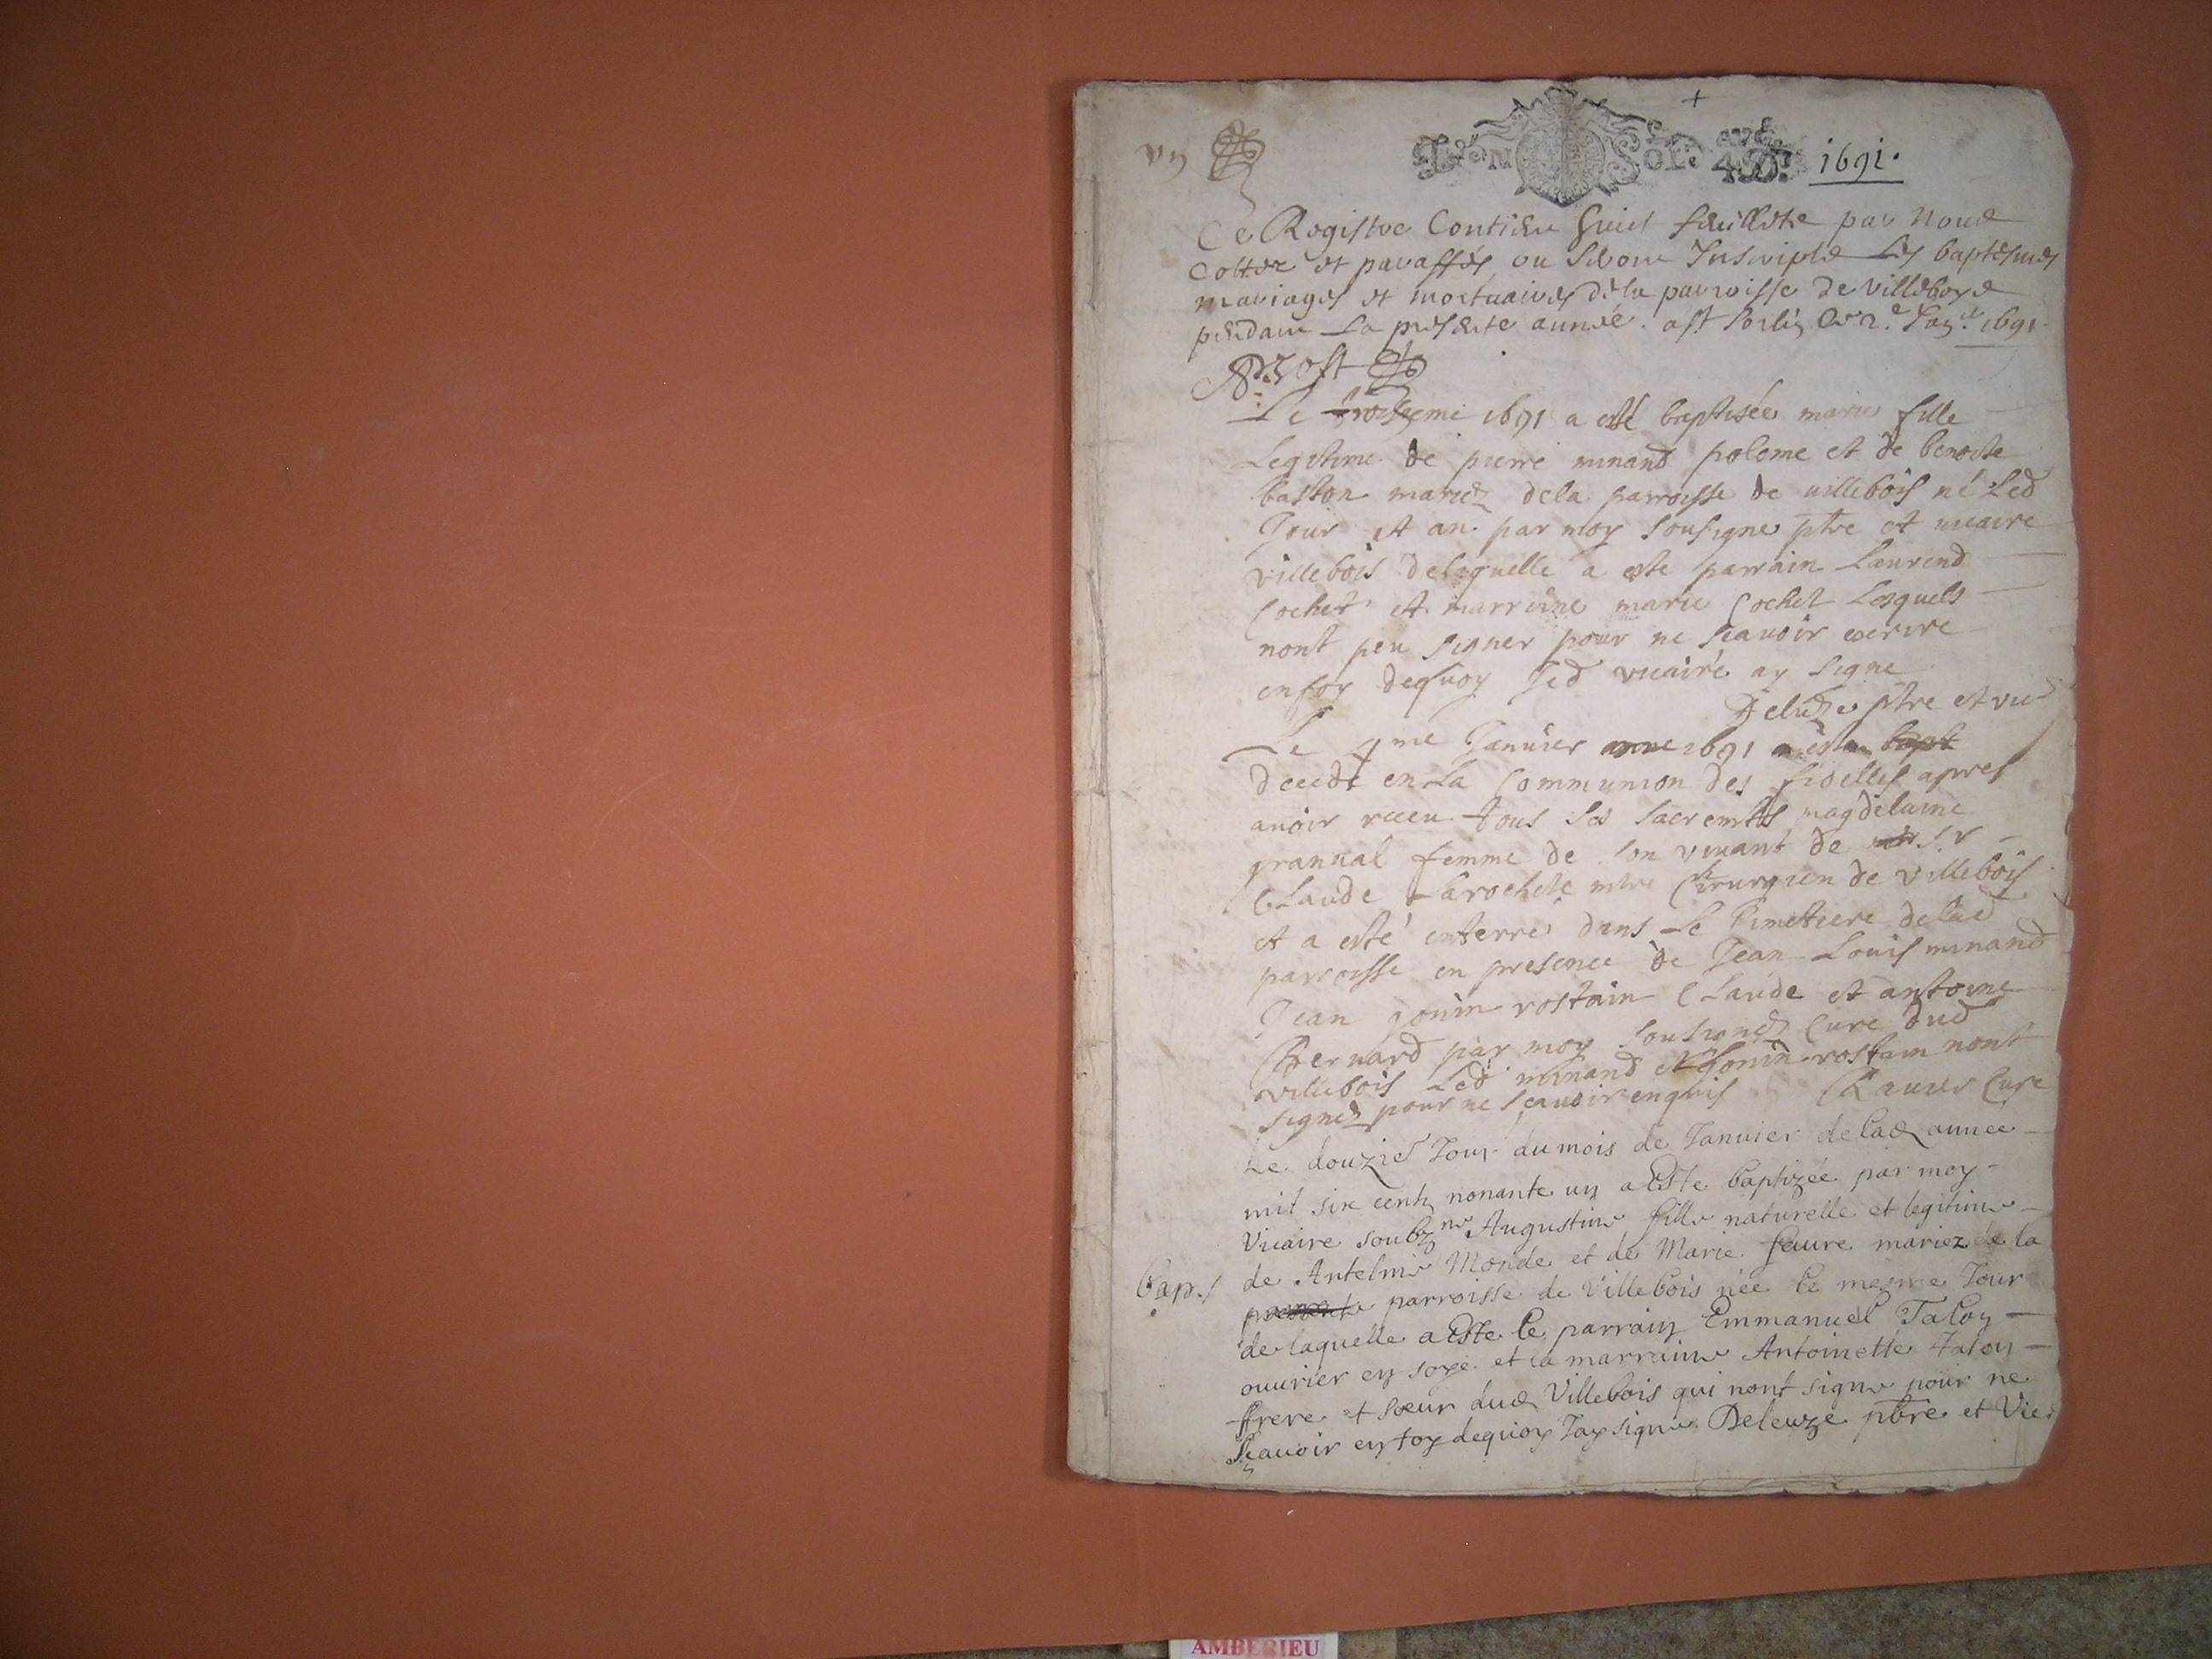 +
vn
Sol 1691.
Ce Registre Contient huict feuillets par Nous
Cottez et paraffés ou seront Inscripts Les baptesmes
mariages et mortuaires de la parroisse de Villeboys
pendant La presente année. 1691
Le troiszeme 1691 a esté baptisée marie fille
Legitime de pierre minand polome et de benoite
baston mariez dela parroisse de villebois né Led
Jour et an par moy sousigne ptre et vicaire
villebois delaquelle a este parrain Laurend
Cochet et marrine marie Cochet Lesquels
nont peu signer pour ne scavoir escrire
enfoy dequoy Jed vicaire ay signe
ptre et vic
Le 4me Janvier 1691 bapt
decede en La Communion des fidelles apres
avoir receu tous ses sacremts magdelaine
granval femme de son vivant de s.r
Claude Larochete mtre Chirurgien de villebois
et a esté enterré dans Le Cimetiere delad
parroisse en presence de Jean Louis minand
Jean gonin rostain Claude et antoine
Bernard par moy soussignez Cure dud
villebois Led minand et gonin rostain nont
signez pour ne scavoir enquis Cure
Le douzie Jour du mois de Janvier de lad annee
mil six cents nonante un a Este baptizée par moy
Vicaire soubzne Augustine fille naturelle et legitime
Bap./ de Antelme Monde et de Marie feure mariez de la
presente parroisse de Villebois née le mesme Jour
de laquelle a Este le parrain Emmanuel Talon
ouurier en soye et la marraine Antoinette Talon
frere et soeur dud Villebois qui nont signe pour ne
sçauoir en foy dequoy Jay signe Deleuze pbre et Vic.
AMBERIEU